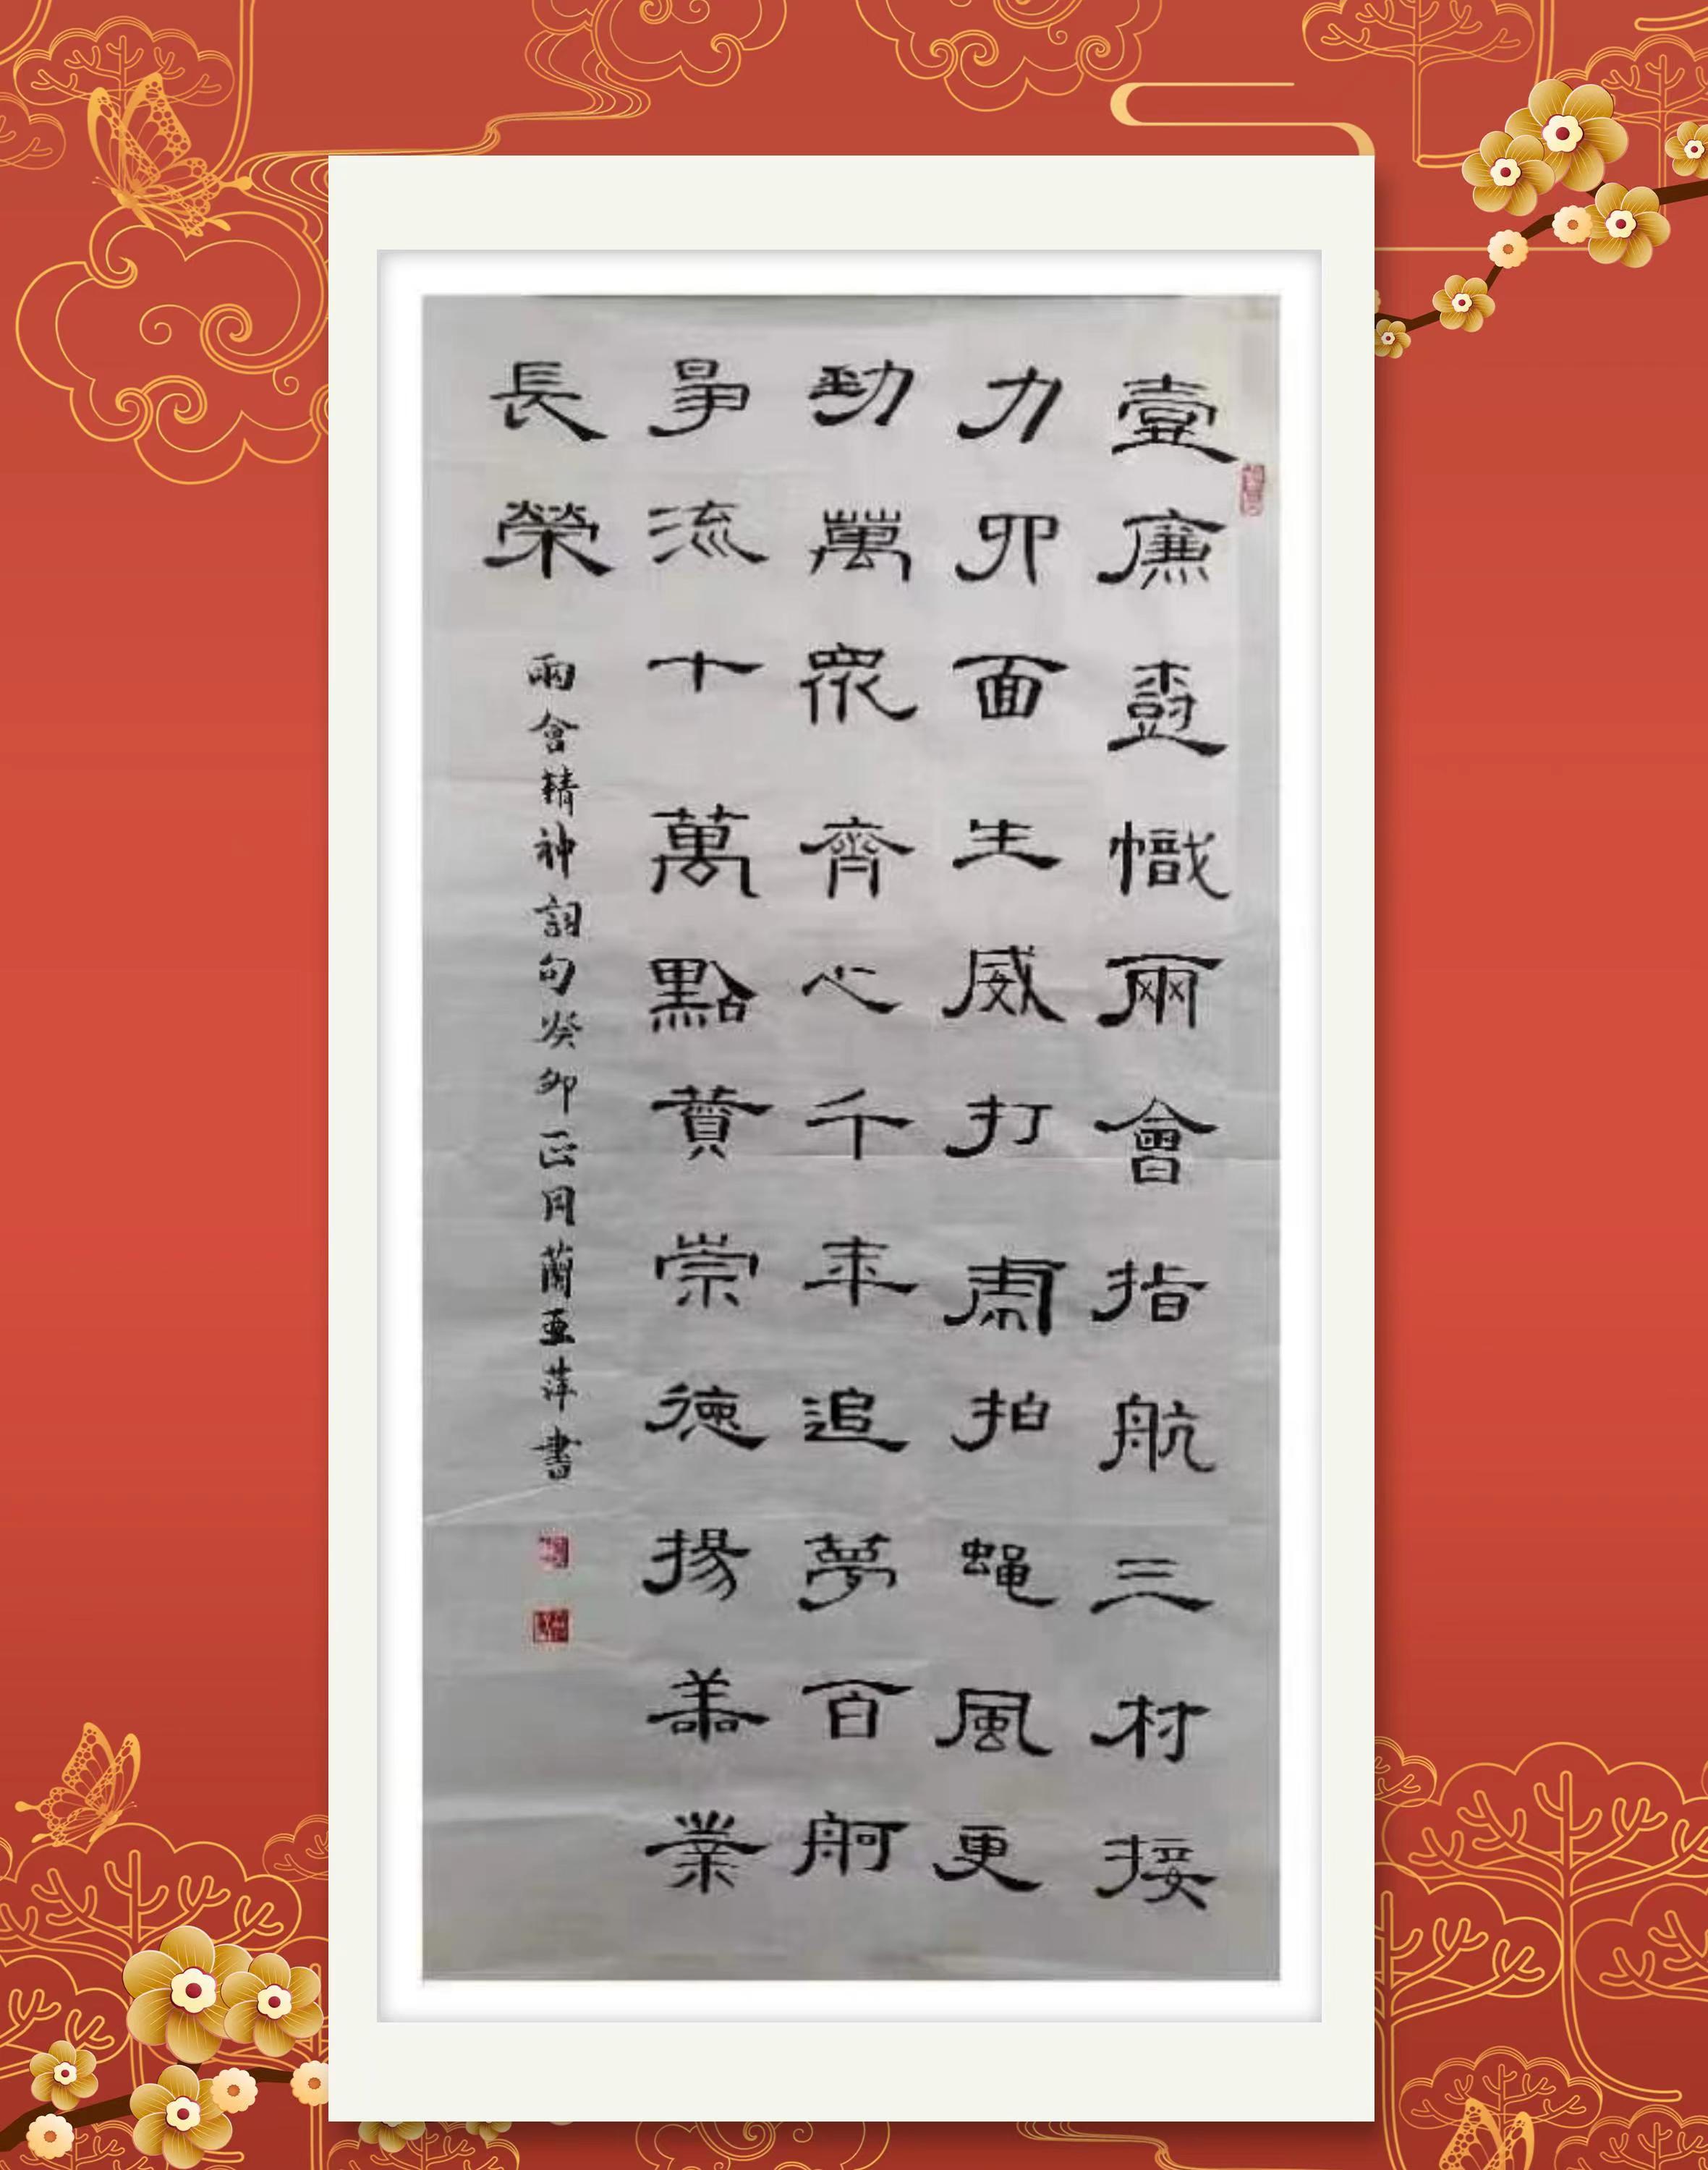 壹廉幟兩會指航三村接
力四面生威打虎拍蝇風更
勁萬眾齊心千年追夢百舸
爭流十萬點贊崇德揚善業
長榮
兩會精神詞句癸卯正月蘭亞萍書